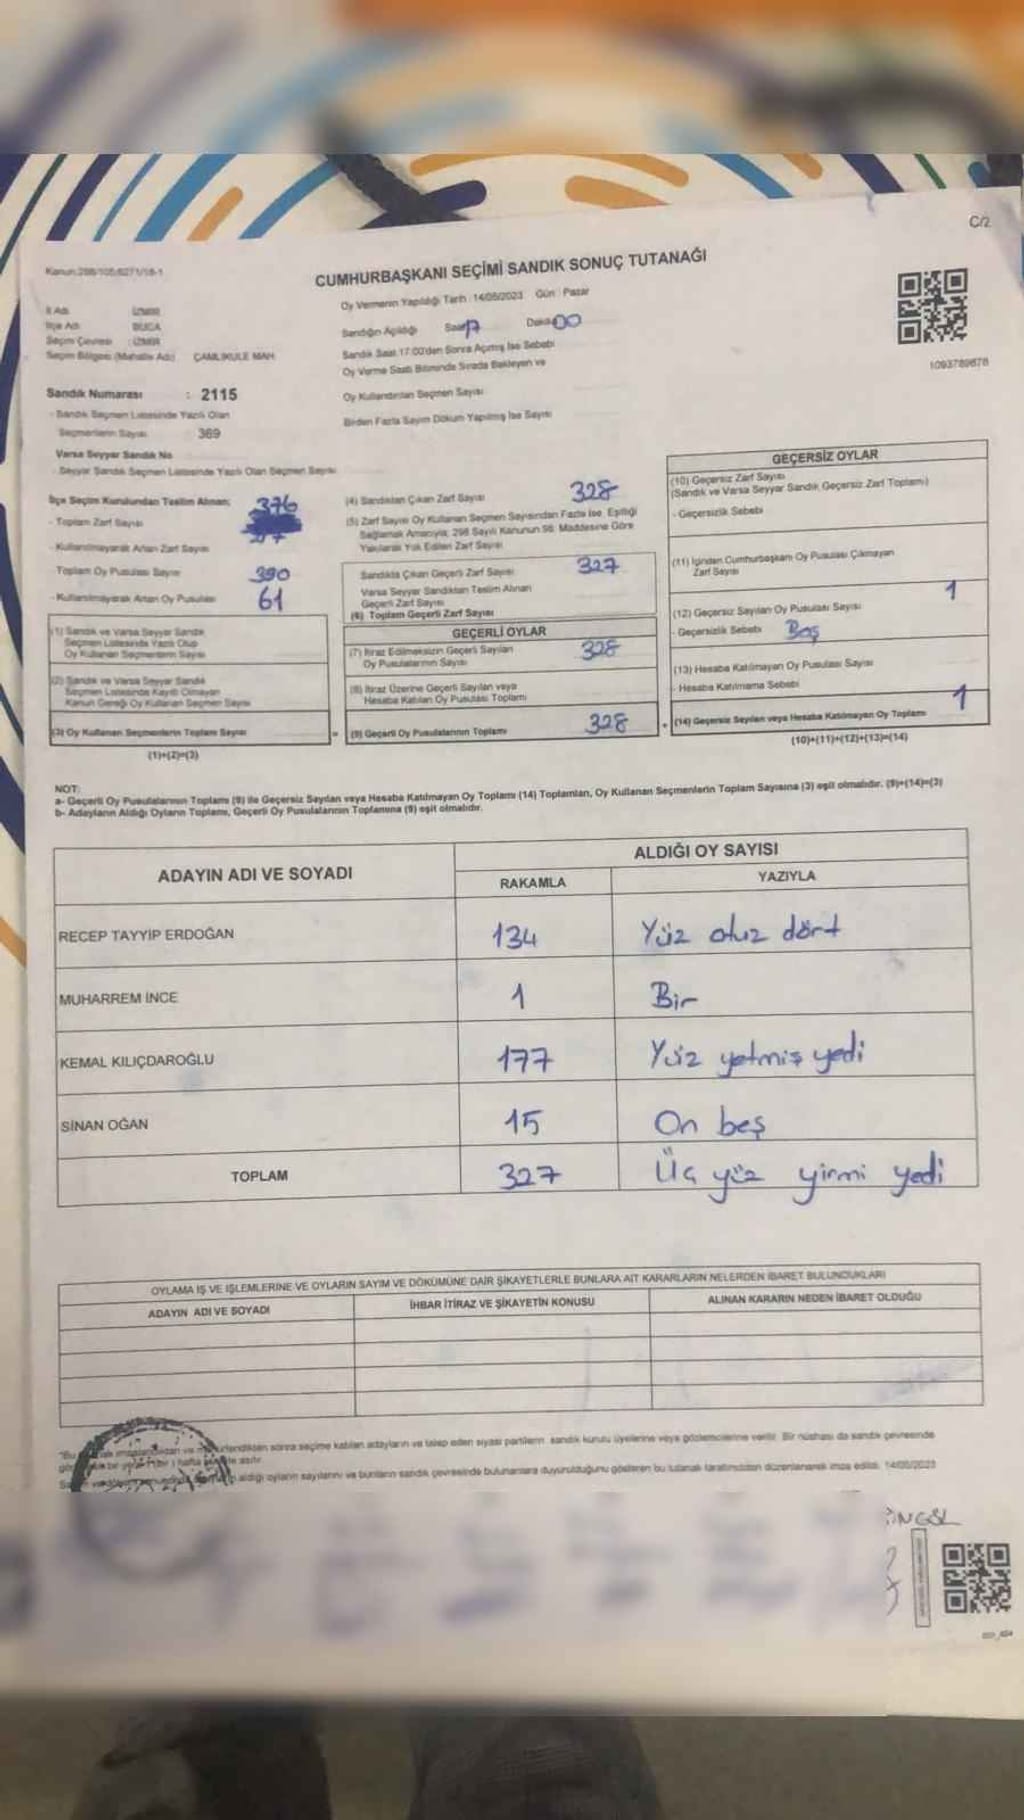 C/2
Kanun:298/105;6271/18-1
CUMHURBAŞKANI SEÇİMİ SANDIK SONUÇ TUTANAĞI
Oy Vermenin Yapıldığı Tarih : 14/05/2023 Gün : Pazar
İl Adı : İZMİR
İlçe Adı : BUCA
Seçim Çevresi : İZMİR
Seçim Bölgesi (Mahalle Adı) : ÇAMLIKULE MAH.
Sandığın Açıldığı Saat 17 Dakika 00
Sandık Saat 17:00'den Sonra Açılmış İse Sebebi
Oy Verme Saati Bitiminde Sırada Bekleyen ve
Oy Kullandırılan Seçmen Sayısı
Birden Fazla Sayım Döküm Yapılmış İse Sayısı
1093789878
Sandık Numarası : 2115
- Sandık Seçmen Listesinde Yazılı Olan
Seçmenlerin Sayısı 369
Varsa Seyyar Sandık No
- Seyyar Sandık Seçmen Listesinde Yazılı Olan Seçmen Sayısı
İlçe Seçim Kurulundan Teslim Alınan;
- Toplam Zarf Sayısı 376
- Kullanılmayarak Artan Zarf Sayısı
Toplam Oy Pusulası Sayısı 390
- Kullanılmayarak Artan Oy Pusulası 61
(1) Sandık ve Varsa Seyyar Sandık
Seçmen Listesinde Yazılı Olup
Oy Kullanan Seçmenlerin Sayısı
(2) Sandık ve Varsa Seyyar Sandık
Seçmen Listesinde Kayıtlı Olmayan
Kanun Gereği Oy Kullanan Seçmen Sayısı
(3) Oy Kullanan Seçmenlerin Toplam Sayısı
(1)+(2)=(3)
(4) Sandıktan Çıkan Zarf Sayısı 328
(5) Zarf Sayısı Oy Kullanan Seçmen Sayısından Fazla İse, Eşitliği
Sağlamak Amacıyla, 298 Sayılı Kanunun 98. Maddesine Göre
Yakılarak Yok Edilen Zarf Sayısı
Sandıkta Çıkan Geçerli Zarf Sayısı 327
Varsa Seyyar Sandıktan Teslim Alınan
Geçerli Zarf Sayısı
(6) Toplam Geçerli Zarf Sayısı
GEÇERLİ OYLAR
(7) İtiraz Edilmeksizin Geçerli Sayılan
Oy Pusulalarının Sayısı 328
(8) İtiraz Üzerine Geçerli Sayılan veya
Hesaba Katılan Oy Pusulası Toplamı
= (9) Geçerli Oy Pusulalarının Toplamı 328 +
GEÇERSİZ OYLAR
(10) Geçersiz Zarf Sayısı
(Sandık ve Varsa Seyyar Sandık Geçersiz Zarf Toplamı)
- Geçersizlik Sebebi
(11) İçinden Cumhurbaşkanı Oy Pusulası Çıkmayan
Zarf Sayısı
(12) Geçersiz Sayılan Oy Pusulası Sayısı 1
- Geçersizlik Sebebi Boş
(13) Hesaba Katılmayan Oy Pusulası Sayısı
- Hesaba Katılmama Sebebi
(14) Geçersiz Sayılan veya Hesaba Katılmayan Oy Toplamı 1
(10)+(11)+(12)+(13)=(14)
NOT:
a- Geçerli Oy Pusulalarının Toplamı (9) ile Geçersiz Sayılan veya Hesaba Katılmayan Oy Toplamı (14) Toplamları, Oy Kullanan Seçmenlerin Toplam Sayısına (3) eşit olmalıdır. (9)+(14)=(3)
b- Adayların Aldığı Oyların Toplamı, Geçerli Oy Pusulalarının Toplamına (9) eşit olmalıdır.
ADAYIN ADI VE SOYADI ALDIĞI OY SAYISI
RAKAMLA YAZIYLA
RECEP TAYYİP ERDOĞAN 134 Yüz otuz dört
MUHARREM İNCE 1 Bir
KEMAL KILIÇDAROĞLU 177 Yüz yetmiş yedi
SİNAN OĞAN 15 On beş
TOPLAM 327 Üç yüz yirmi yedi
OYLAMA İŞ VE İŞLEMLERİNE VE OYLARIN SAYIM VE DÖKÜMÜNE DAİR ŞİKAYETLERLE BUNLARA AİT KARARLARIN NELERDEN İBARET BULUNDUKLARI
ADAYIN ADI VE SOYADI İHBAR İTİRAZ VE ŞİKAYETİN KONUSU ALINAN KARARIN NEDEN İBARET OLDUĞU
sonra seçime katılan adayların ve talep eden siyasi partilerin sandık kurulu üyelerine veya gözlemcilerine verilir. Bir nüshası da sandık çevresinde
aldığı oyların sayılarını ve bunların sandık çevresinde bulunanlara duyurulduğunu gösteren bu tutanak tarafımızdan düzenlenerek imza edildi. 14/05/2023